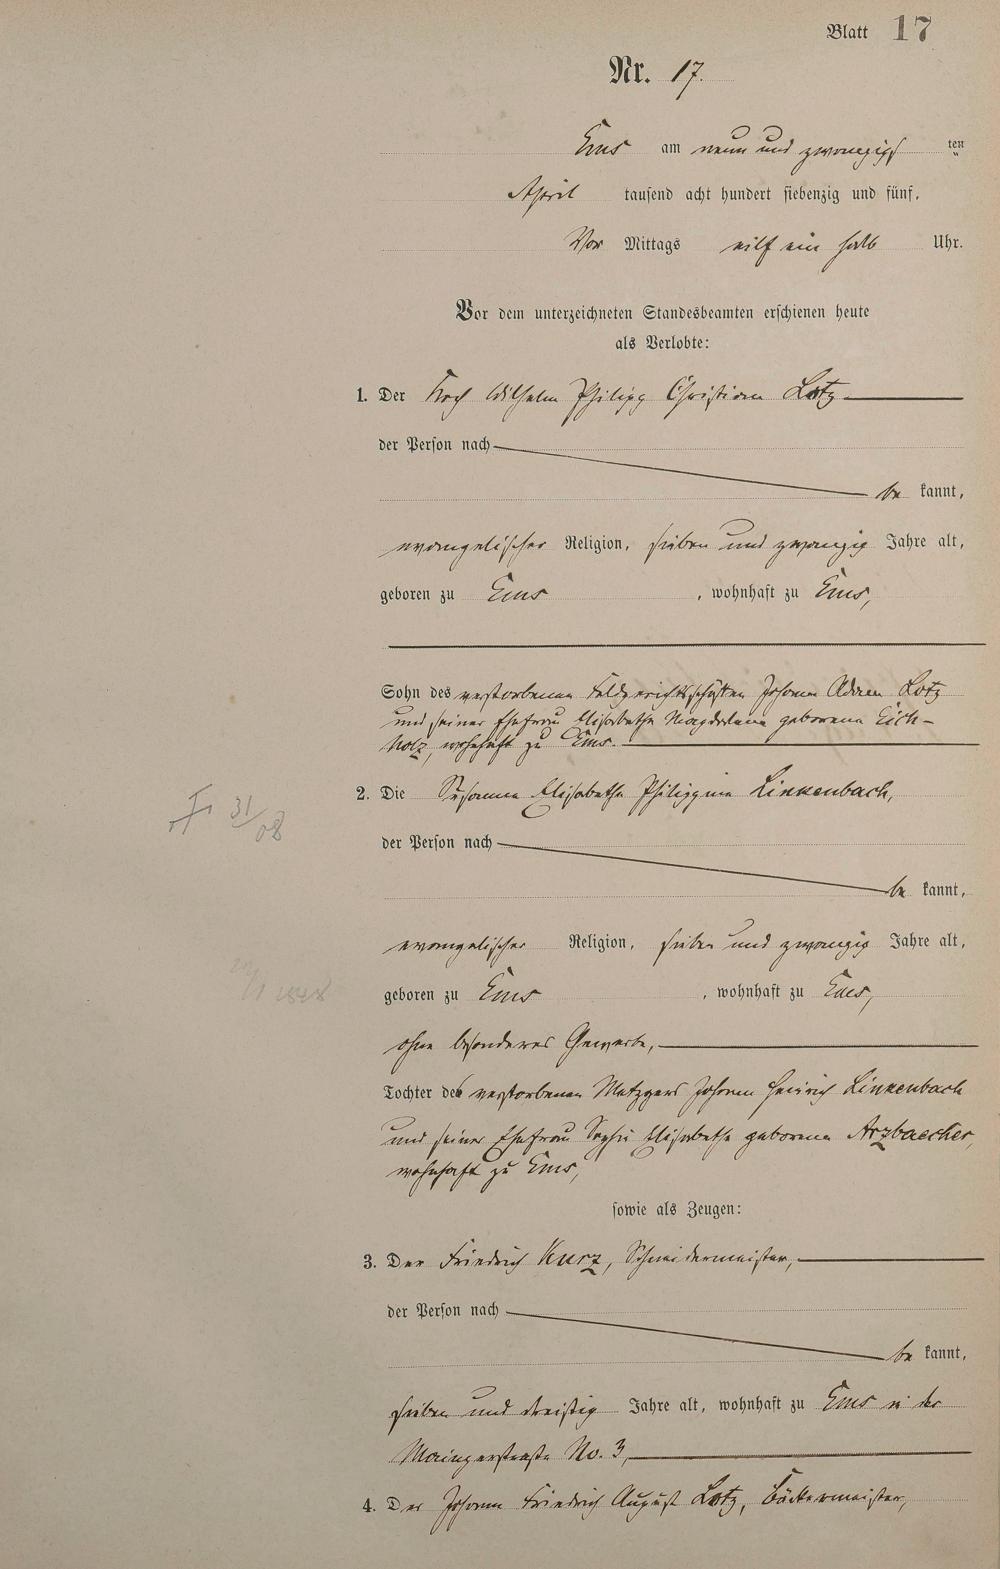 Blatt 17
Nr. 17.
Ems am neun und zwanzigs ten
April tausend acht hundert siebenzig und fünf.
Vor Mittags eilf ein halb Uhr.
Vor dem unterzeichneten Standesbeamten erschienen heute
als Verlobte:
1. Der Koch Wilhelm Philipp Christian Lotz
der Person nach
be kannt,
evangelischer Religion, sieben und zwanzig Jahre alt,
geboren zu Ems, wohnhaft zu Ems,
Sohn des verstorbenen Feldgerichtsschöffen Johann Adam Lotz
und seiner Ehefrau Elisabetha Magdalena geborene Eich-
holz, wohnhaft zu Ems.
2. Die Susanna Elisabetha Philippina Linkenbach,
der Person nach
be kannt,
evangelischer Religion, sieben und zwanzig Jahre alt,
geboren zu Ems, wohnhaft zu Ems,
ohne besonderes Gewerbe,
Tochter des verstorbenen Metzgers Johann Heinrich Linkenbach
und seiner Ehefrau Sophie Elisabetha geborene Arzbaecher,
wohnhaft zu Ems,
sowie als Zeugen:
3. Der Friedrich Kurz, Schneidermeister,
der Person nach
be kannt,
sieben und dreißig Jahre alt, wohnhaft zu Ems in der
Mainzerstraße No. 3,
4. Der Johann Friedrich August Lotz, Bäckermeister,
31/08